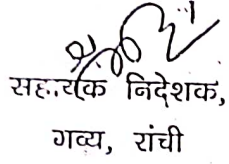 सहायक निदेशक,
गव्य, रांची